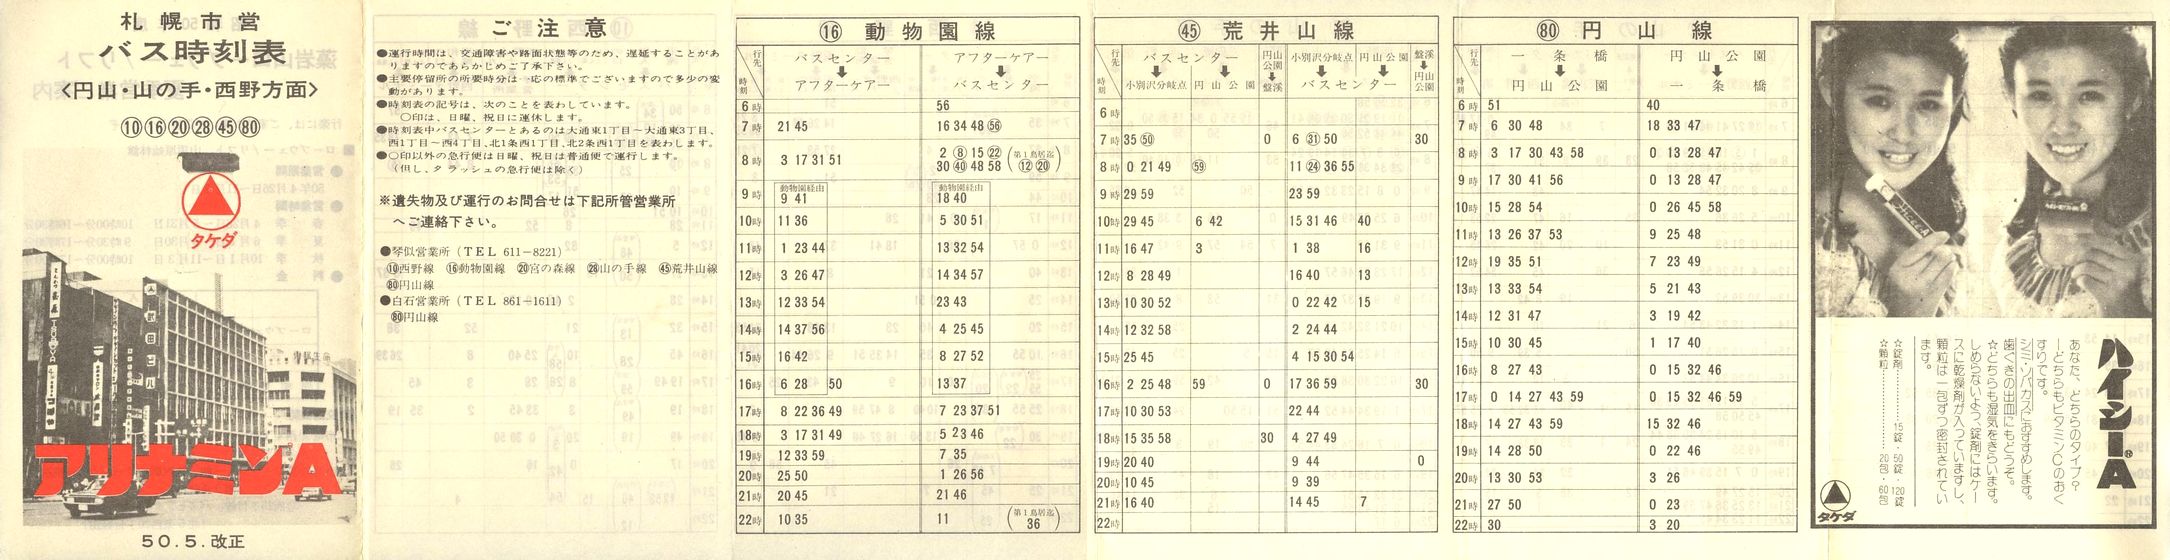 札幌市営
バス時刻表
〈円山・山の手・西野方面〉
⑩⑯⑳㉘㊺80
タケダ
武田ビル
アリナミンA
50.5.改正
ご注意
●運行時間は、交通障害や路面状態等のため、遅延することがあ
りますのであらかじめご了承下さい。
●主要停留所の所要時分は一応の標準でございますので多少の変
動があります。
●時刻表の記号は、次のことを表わしています。
○印は、日曜、祝日に運休します。
●時刻表中バスセンターとあるのは大通東1丁目〜大通東3丁目、
西1丁目〜西4丁目、北1条西1丁目、北2条西1丁目を表わします。
●○印以外の急行便は日曜、祝日は普通便で運行します。
(但し、タ ラッシュの急行便は除く)
※遺失物及び運行のお問合せは下記所管営業所
へご連絡下さい。
●琴似営業所(TEL 611-8221)
⑩西野線 ⑯動物園線 ⑳宮の森線 ㉘山の手線 ㊺荒井山線
80円山線
●白石営業所(TEL 861-1611)
80円山線
⑯ 動物園線
行先 時刻 バスセンター ↓ アフターケアー アフターケアー ↓ バスセンター
6時 56
7時 21 45 16 34 48 (56)
8時 3 17 31 51 2 ⑧ 15 ㉒ 30 ㊵ 48 58 (第1鳥居迄 ⑫ ⑳)
9時 動物園経由 9 41 動物園経由 18 40
10時 11 36 5 30 51
11時 1 23 44 13 32 54
12時 3 26 47 14 34 57
13時 12 33 54 23 43
14時 14 37 56 4 25 45
15時 16 42 8 27 52
16時 6 28 50 13 37
17時 8 22 36 49 7 23 37 51
18時 3 17 31 49 5 23 46
19時 12 33 59 7 35
20時 25 50 1 26 56
21時 20 45 21 46
22時 10 35 11 (第1鳥居迄 36)
㊺ 荒井山線
行先 時刻 バスセンター ↓ 小別沢分岐点 円山公園 円山公園 ↓ 盤渓 小別沢分岐点 円山公園 ↓ バスセンター 盤渓 ↓ 円山公園
6時
7時 35 ㊿ 0 6 ㉛ 50 30
8時 0 21 49 (59) 11 ㉔ 36 55
9時 29 59 23 59
10時 29 45 6 42 15 31 46 40
11時 16 47 3 1 38 16
12時 8 28 49 16 40 13
13時 10 30 52 0 22 42 15
14時 12 32 58 2 24 44
15時 25 45 4 15 30 54
16時 2 25 48 59 0 17 36 59 30
17時 10 30 53 22 44
18時 15 35 58 30 4 27 49
19時 20 40 9 44 0
20時 10 45 9 39
21時 16 40 14 45 7
22時
80 円山線
行先 時刻 一条橋 ↓ 円山公園 円山公園 ↓ 一条橋
6時 51 40
7時 6 30 48 18 33 47
8時 3 17 30 43 58 0 13 28 47
9時 17 30 41 56 0 13 28 47
10時 15 28 54 0 26 45 58
11時 13 26 37 53 9 25 48
12時 19 35 51 7 23 49
13時 13 33 54 5 21 43
14時 12 31 47 3 19 42
15時 10 30 45 1 17 40
16時 8 27 43 0 15 32 46
17時 0 14 27 43 59 0 15 32 46 59
18時 14 27 43 59 15 32 46
19時 14 28 50 0 22 46
20時 13 30 53 3 26
21時 27 50 0 23
22時 30 3 20
ハイシーA
あなた、どちらのタイプ?
―どちらもビタミンCのおく
すりです。
シミ・ソバカスにおすすめします。
歯ぐきの出血にもどうぞ。
☆どちらも湿気をきらいます。
しめらないよう、錠剤にはケー
スに乾燥剤が入っていますし、
顆粒は一包ずつ密封されてい
ます。
☆錠剤……15錠・50錠・120錠
☆顆粒……20包・60包
タケダ